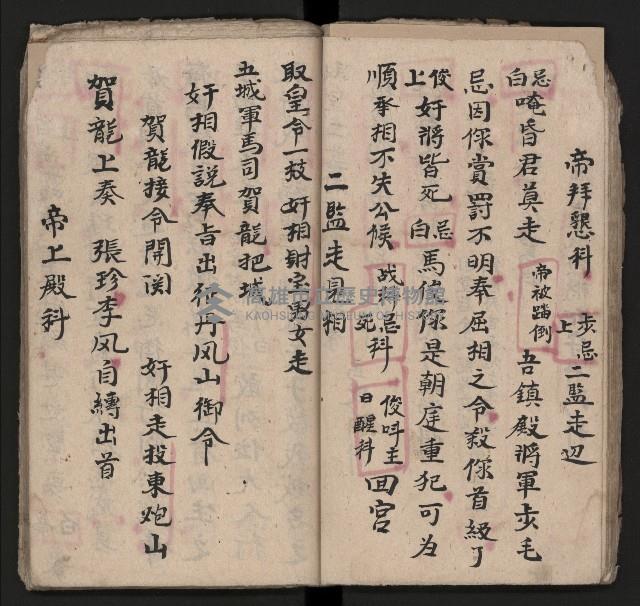 帝拜懇科 步忌上 二監走辺
忌白 唵昏君莫走 帝被踏倒 吾鎮殿將軍步毛
忌因你賞罰不明奉屈相之令殺你首級了
俊上 奸將皆死 忌白 馬俊你是朝庭重犯可為
順承相不失公候 战科忌死科 俊呌主曰醒科 回宮
二監走見相
取皇令一枝 奸相財宝男女走
五城軍馬司賀龍把城
奸相假説奉旨出征丹风山御令
賀龍接令開関 奸相走投東炮山
賀龍上奏 張珍李风自縳出首
帝上殿科
高雄市立歷史博物館
KAOHSIUNG MUSEUM OF HISTORY